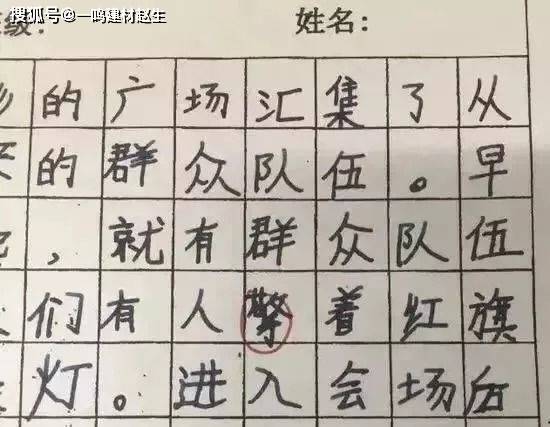 搜狐号@一鸣建材赵生
级： 姓名：
的广场汇集了从
的群众队伍。早
，就有群众队伍
们有人擎着红旗
灯。进入会场后